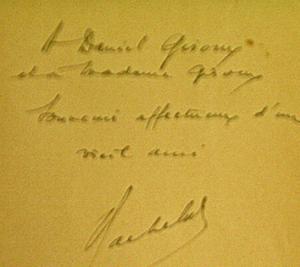 A Daniel Girony
et a Madame Girony
Souvenir affectueux d'un
vieil ami